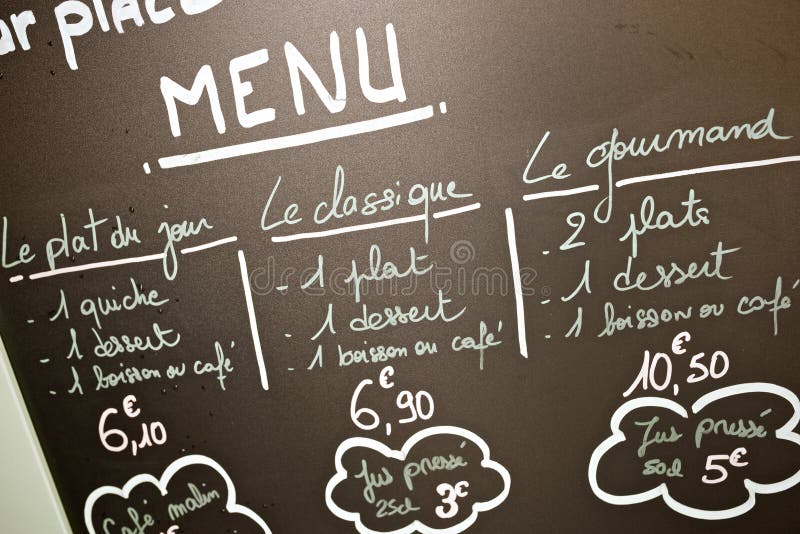 ur PLACE
MENU
Le plat du jour
- 1 quiche
- 1 dessert
- 1 boisson ou café
6,10€
Café malin
Le classique
- 1 plat
- 1 dessert
- 1 boisson ou café
6,90€
Jus pressé
25cl 3€
Le gourmand
- 2 plats
- 1 dessert
- 1 boisson ou café
10,50€
Jus pressé
50cl 5€
dreamstime